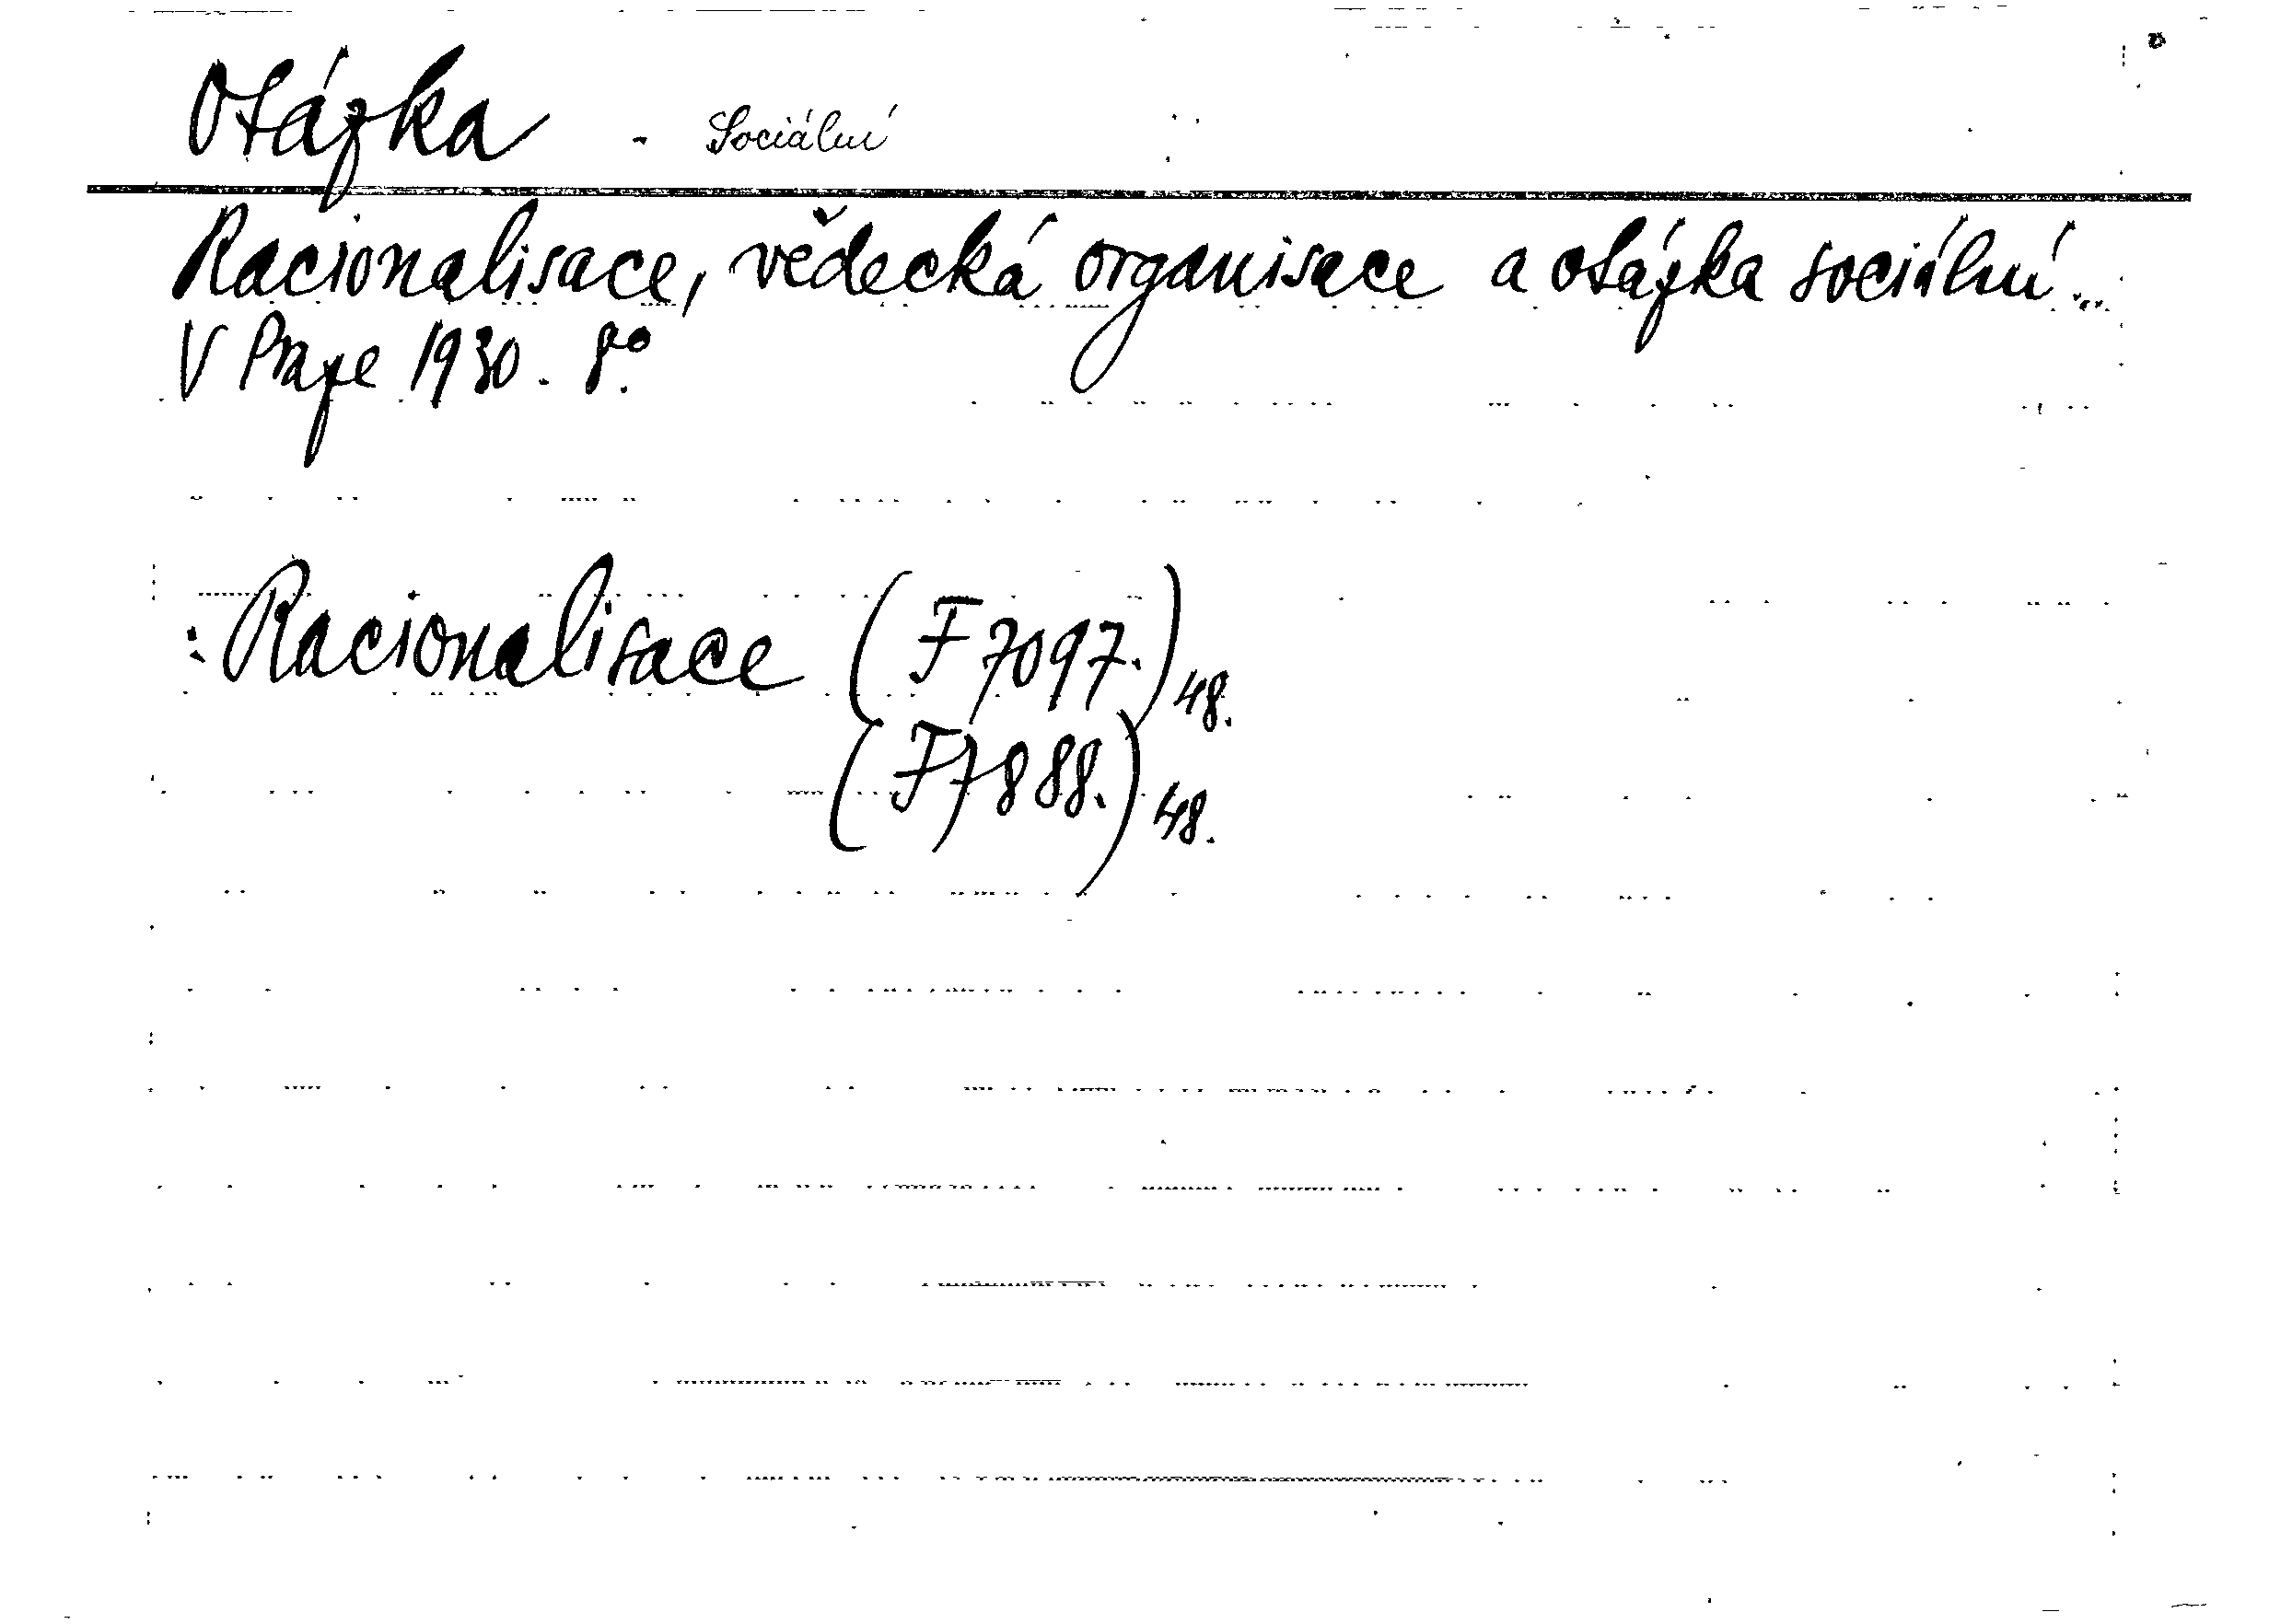 Otázka - Sociální
Racionalisace, vědecká organisace a otázka sociální...
V Praze 1930. 8°.
: Racionalisace (F 7097.) 48.
(F 7888.) 48.